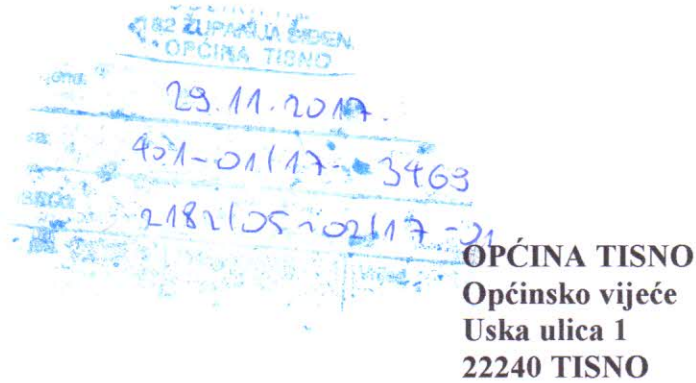 82 ŽUPANIJA ŠIBEN.
OPĆINA TISNO
29.11.2017.
401-01/17- 3469
2182/05-02/17-01
OPĆINA TISNO
Općinsko vijeće
Uska ulica 1
22240 TISNO